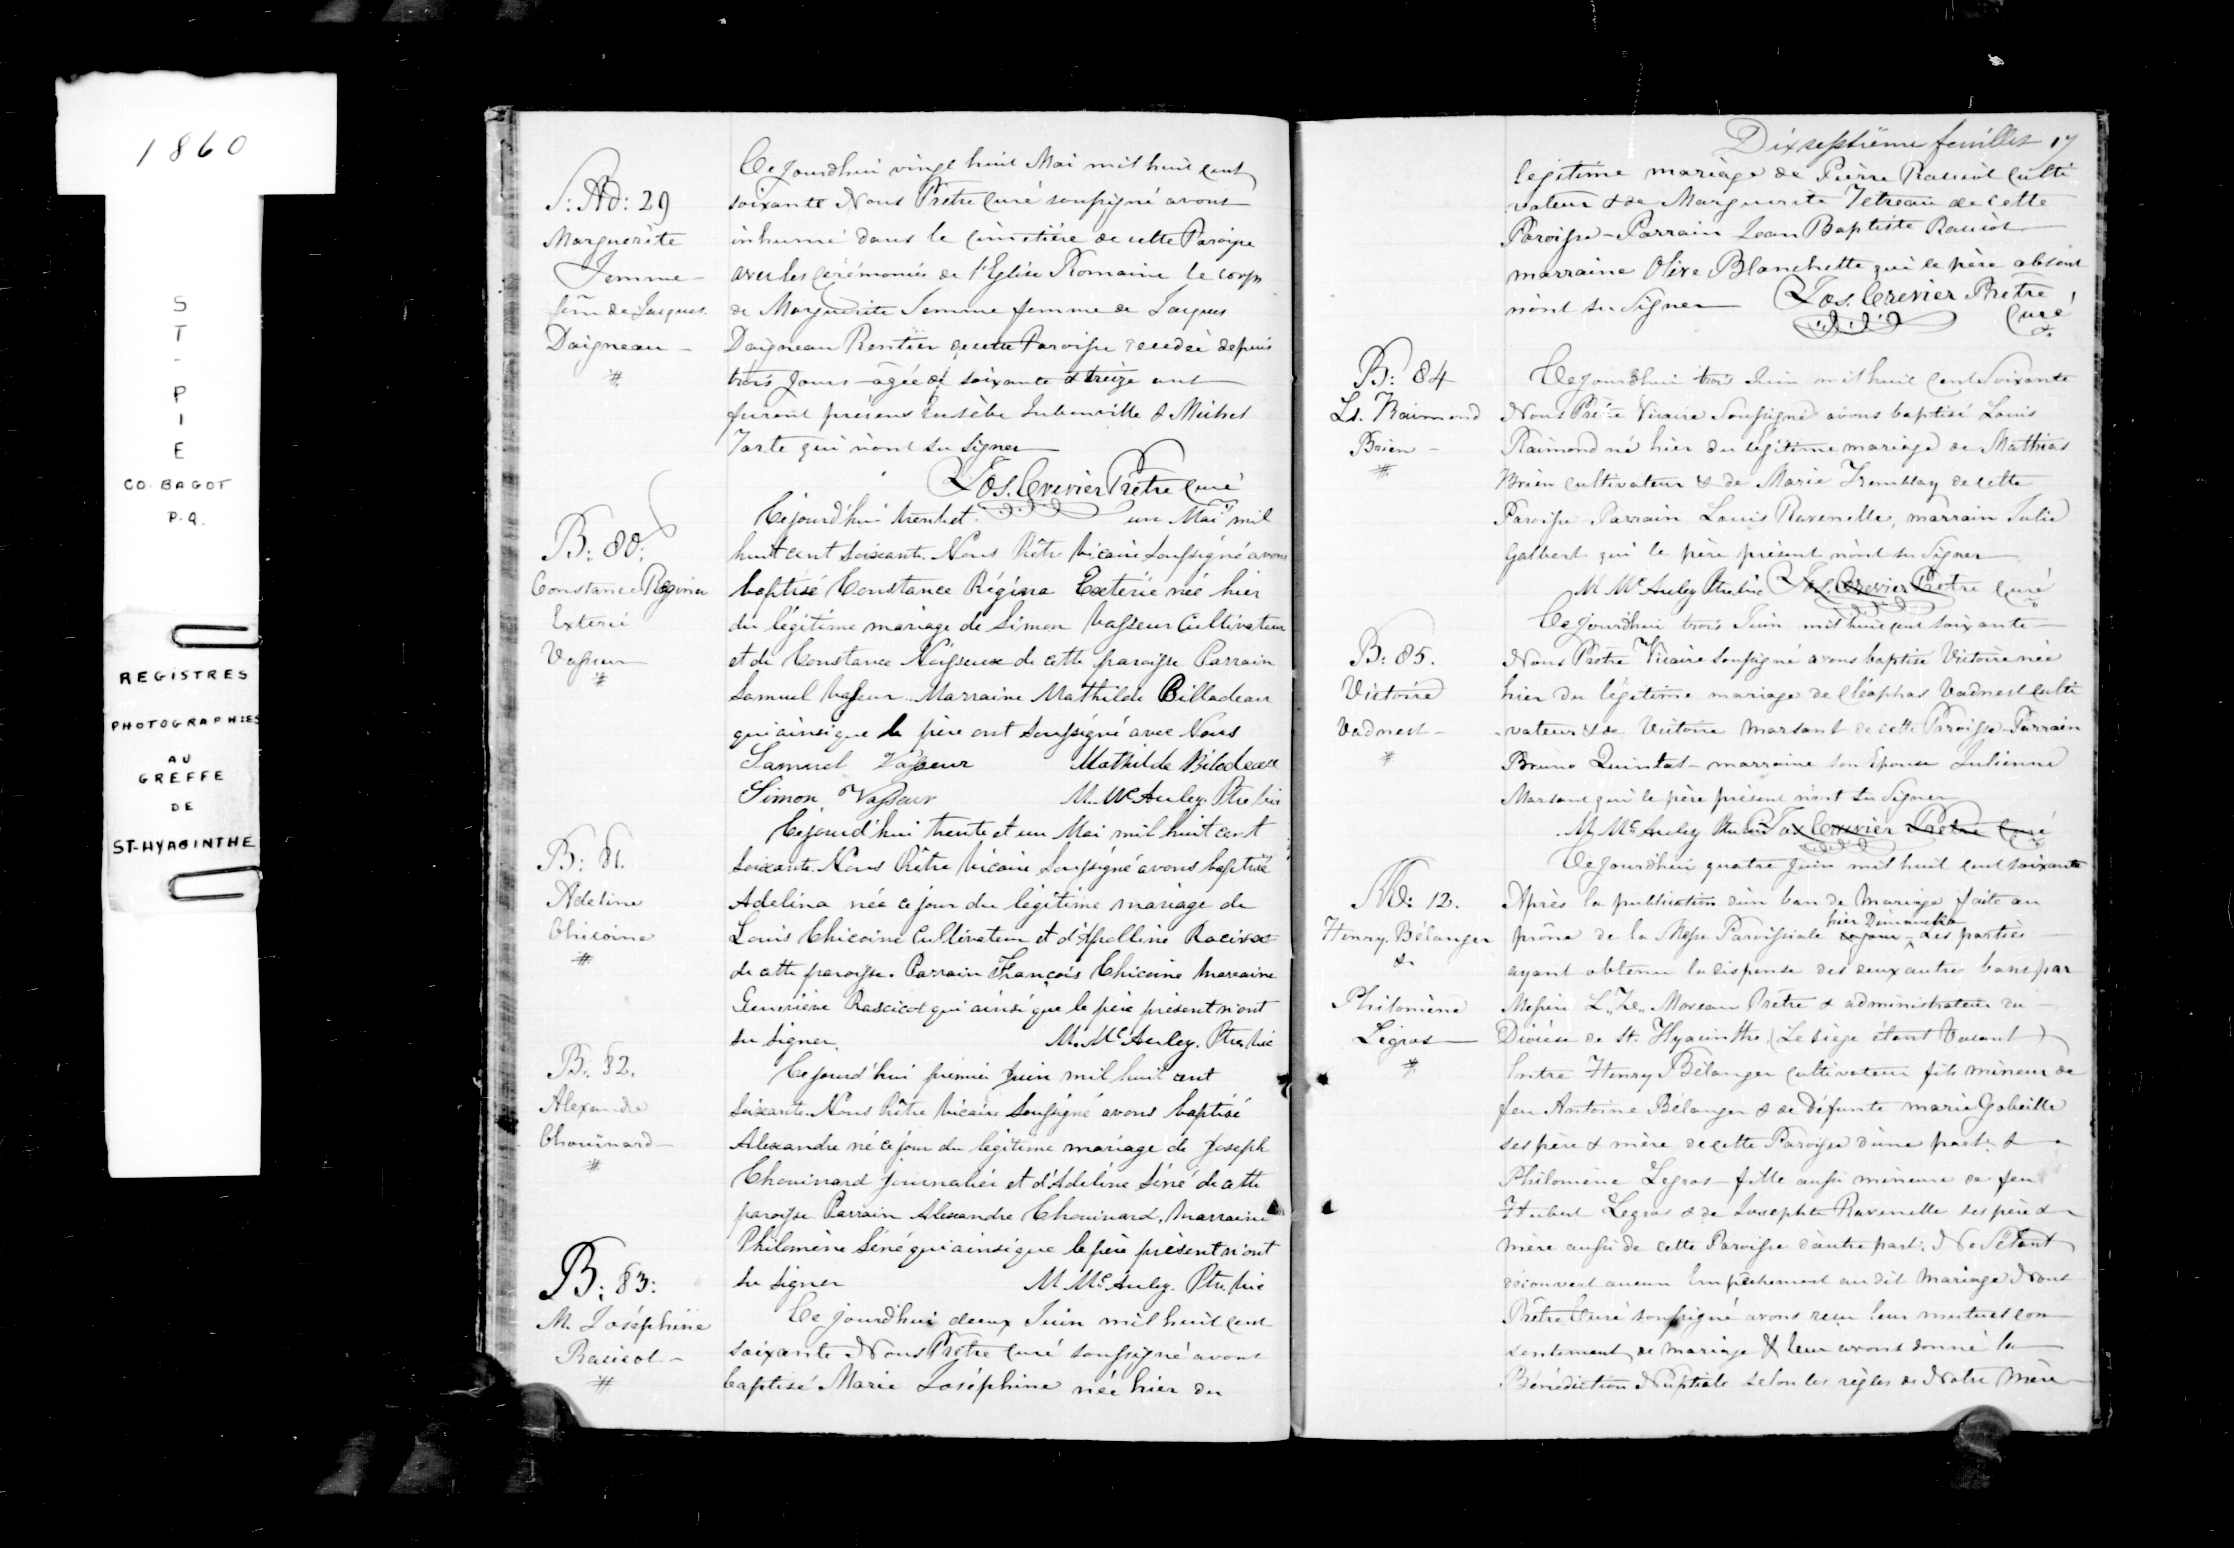 1860
S
T
-
P
I
E
CO. BAGOT
P.Q.
REGISTRES
PHOTOGRAPHIES
AU
GREFFE
DE
ST-HYACINTHE
S: Ad: 29
Marguerite
Jemme
fem de Jacques
Daigneau
#
Ce jourdhui vingt huit Mai mil huit cent
soixante Nous Prêtre Curé soussigné avons
inhumé dans le Cimetière de cette Paroisse
avec les Cérémonies de l'Eglise Romaine le corps
de Marguerite Jemme femme de Jacques
Daigneau Rentier de cette Paroisse décédée depuis
trois jours âgée de soixante & treize ans
furent présens Eusèbe Lubenville & Michel
Tarte qui n'ont su signer
Jos. Crevier Prêtre Curé
B: 80:
Constance Regina
Exterie
Vasseur
#
Cejourd'hui trente et un Mai mil
huit cent soixante. Nous Prêtre Vicaire soussigné avons
baptisé Constance Régina Exterie née hier
du légitime mariage de Simon Vasseur Cultivateur
et de Constance Noiseux de cette paroisse Parrain
Samuel Vasseur. Marraine Mathilde Billadeau
qui ainsi que le père ont soussigné avec Nous
Samuel Vasseur Mathilde Bilodeau
Simon Vasseur M. McAuley. Ptre Vic
B: 81.
Adelina
Chicoine
#
Cejourd'hui trente et un Mai mil huit cent
soixante. Nous Prêtre Vicaire soussigné avons baptisé
Adelina née ce jour du légitime mariage de
Louis Chicoine Cultivateur et d'Apolline Racicot
de cette paroisse. Parrain François Chicoine Marraine
Geneviève Rascicot qui ainsi que le père présent n'ont
su signer. M. McAuley. Ptre Vic
B: 82.
Alexandre
Chouinard
#
Cejourd'hui premier Juin mil huit cent
soixante. Nous Prêtre Vicaire soussigné avons baptisé
Alexandre né ce jour du légitime mariage de Joseph
Chouinard journalier et d'Adeline Séné de cette
paroisse Parrain Alexandre Chouinard, Marraine
Philomène Séné qui ainsi que le père présent n'ont
su signer M. McAuley. Ptre Vic
B: 83:
M. Joséphine
Racicot
#
Ce jourdhui deux Juin mil huit cent
soixante Nous Prêtre Curé soussigné avons
baptisé Marie Joséphine née hier du
Dixseptième feuillet 17
légitime mariage de Pierre Racicot Culti
vateur & de Marguerite Tetreau de cette
Paroisse - Parrain Jean Baptiste Racicot
marraine Olive Blanchette qui le père absent
n'ont su signer Jos. Crevier Prêtre
Curé
B: 84
Ls. Raimond
Brien
#
Ce jourdhui trois Juin mil huit cent Soixante
Nous Prêtre Vicaire Soussigné avons baptisé Louis
Raimond né hier du légitime mariage de Mathias
Brien Cultivateur & de Marie Tremblay de cette
Paroisse Parrain Louis Ravenelle, marrain Julie
Galbert qui le père présent n'ont su Signer
M McAuley Ptre Vic Jos. Crevier Prêtre Curé
B: 85.
Victoire
Vadnest
#
Ce jourdhui trois Juin mil huit cent soixante
Nous Prêtre Vicaire soussigné avons baptisé Victoire née
hier du légitime mariage de Cléophas Vadnest Culti
vateur & de Victoire Marsant de cette Paroisse Parrain
Bruno Quintal - marraine son Epouse Julienne
Marsant qui le père présent n'ont su Signer
M. McAuley Ptre Vic Jos. Crevier Prêtre Curé
M: 12.
Henry Bélanger
&
Philomène
Légros
#
Ce jourdhui quatre Juin mil huit cent soixante
Après la publication d'un ban de Mariage faite au
hier Dimanche
prône de la Messe Paroissiale ce jour - Les parties
ayant obtenu la dispense des deux autres bans par
Messire L. Z. Moreau Prêtre & administrateur du
Diocèse de St. Hyacinthe (Le siège étant Vacant)
Entre Henry Bélanger Cultivateur fils mineur de
feu Antoine Bélanger & de Défunte marie Gabeille
ses père & mère de cette Paroisse d'une part &
Philomène Legros - fille aussi mineure de feu
Hubert Legros & de Josephte Ravenelle ses père &
mère aussi de cette Paroisse d'autre part. Ne s'étant
découvert aucun Empêchement au dit mariage Nous
Prêtre Curé soussigné avons reçu leur mutuel con
sentement de mariage & leur avons donné la
Bénédiction Nuptiale selon les règles de Notre Mère